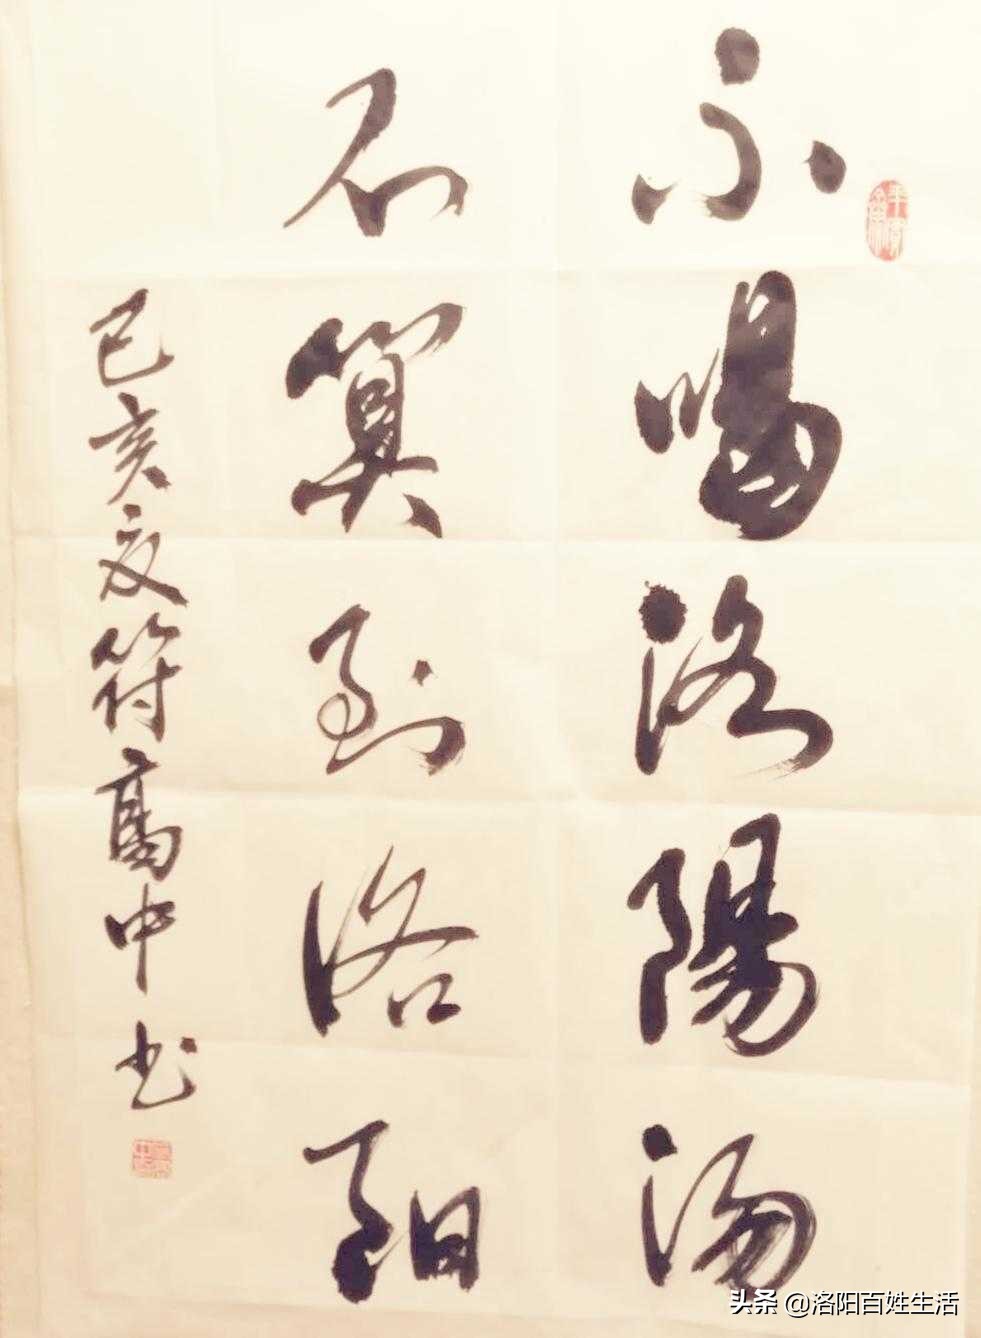 不喝洛陽湯
不算到洛阳
己亥夏符高中书
头条 @洛阳百姓生活